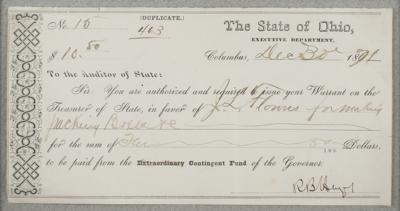 (DUPLICATE.)
No. 18
403
The State of Ohio,
EXECUTIVE DEPARTMENT,
$10.50
Columbus, Dec 30 1871
To the Auditor of State:
Sir. You are authorized and required to issue your Warrant on the
Treasurer of State, in favor of J. L. for making
packing Boxes
for the sum of Ten 50/100 Dollars,
to be paid from the Extraordinary Contingent Fund of the Governor
R B Hayes